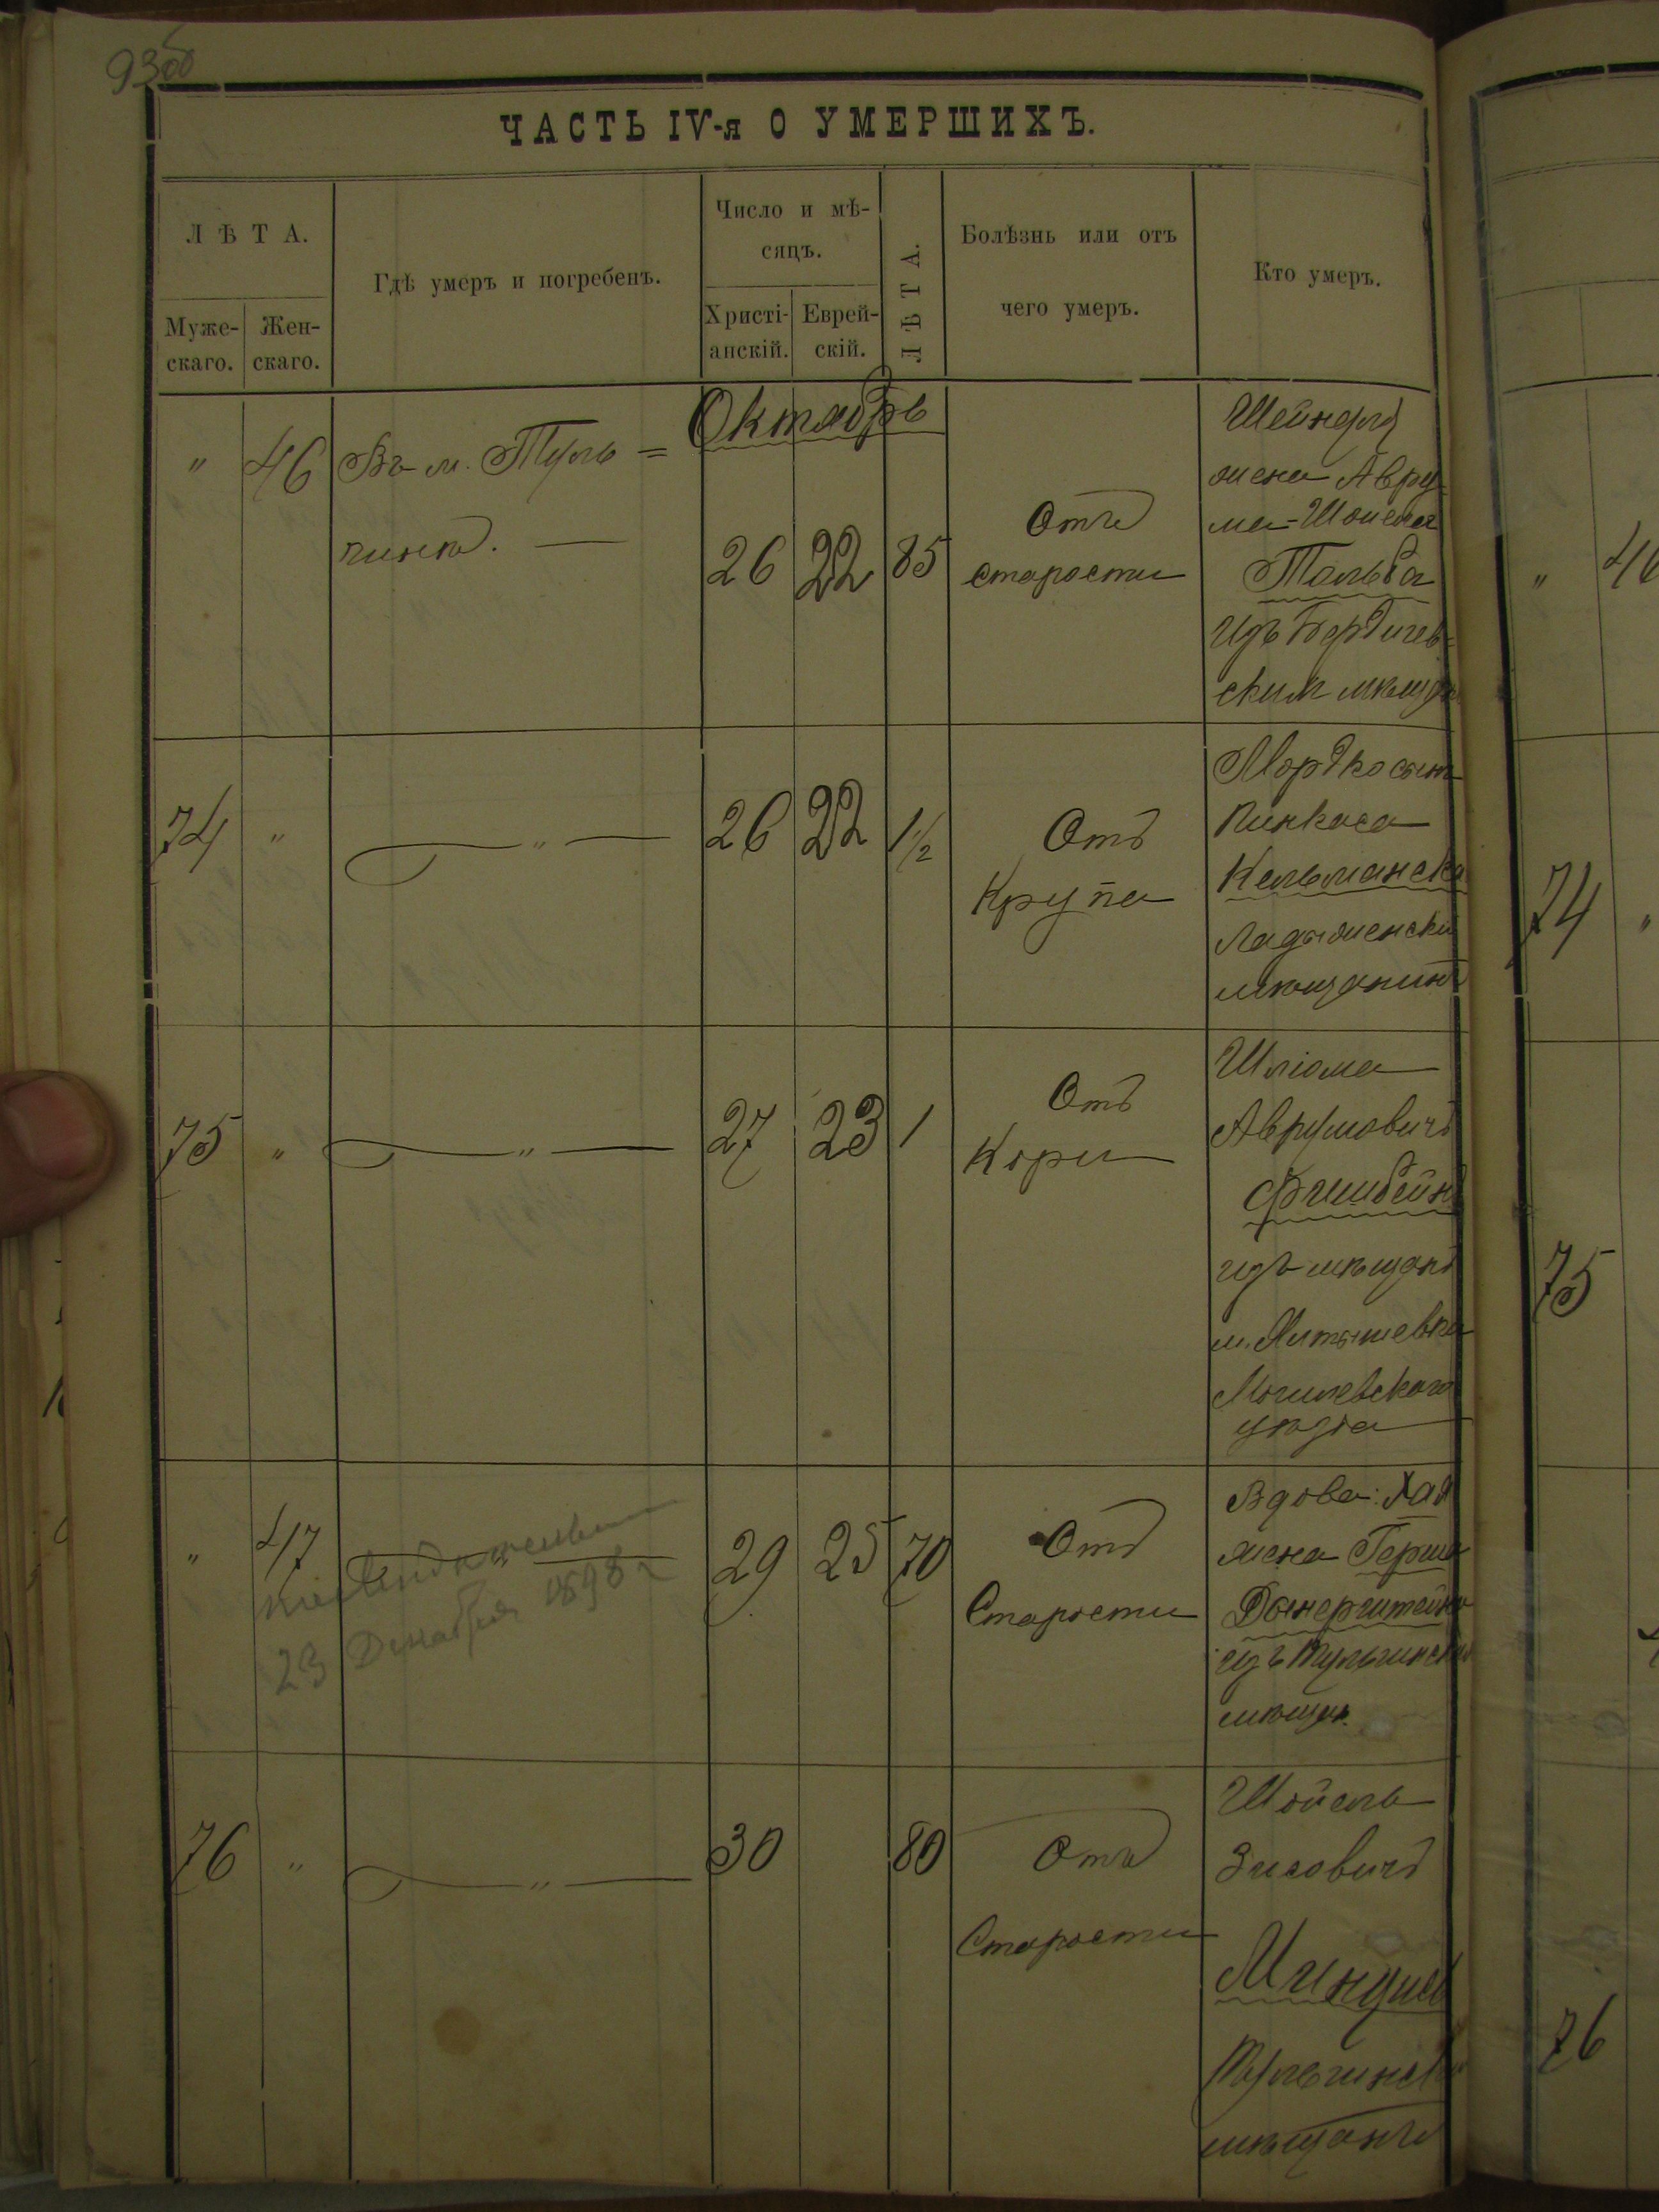 93об
ЧАСТЬ IV-я О УМЕРШИХЪ.
ЛѢТА.
Муже-
скаго.
Жен-
скаго.
Гдѣ умеръ и погребенъ.
Число и мѣ-
сяцъ.
Христі-
анскій.
Еврей-
скій.
ЛѢТА.
Болѣзнь или отъ
чего умеръ.
Кто умеръ.
Октябрь
" 46 Въ м. Туль=
чинѣ. —
26 22 85
Отъ
старости
Шейндля
жена Авру-
ма-Шоеля
Тольба
изъ Бердичев-
скихъ мѣщан
74 " — " — 26 22 1 1/2
Отъ
Крупа
Мордко сынъ
Пинкаса
Кельманска
Ладыженски
мѣщанинъ
75 " — " — 27 23 1
Отъ
Кори
Шлiома
Аврумовичъ
Фишбейнъ
изъ мѣщанъ
м. Ялтышевка
Могилевскаго
уѣзда
" 47 — " — 29 25 70
23 Декабря 1898 г
Отъ
Старости
Вдова: Хая
жена Герша
изъ Тульчински
мѣщан.
76 " — " — 30 80
Отъ
Старости
Шойель
Зисовичъ
Тульчински
мѣщанинъ
" 46
74 "
75
76